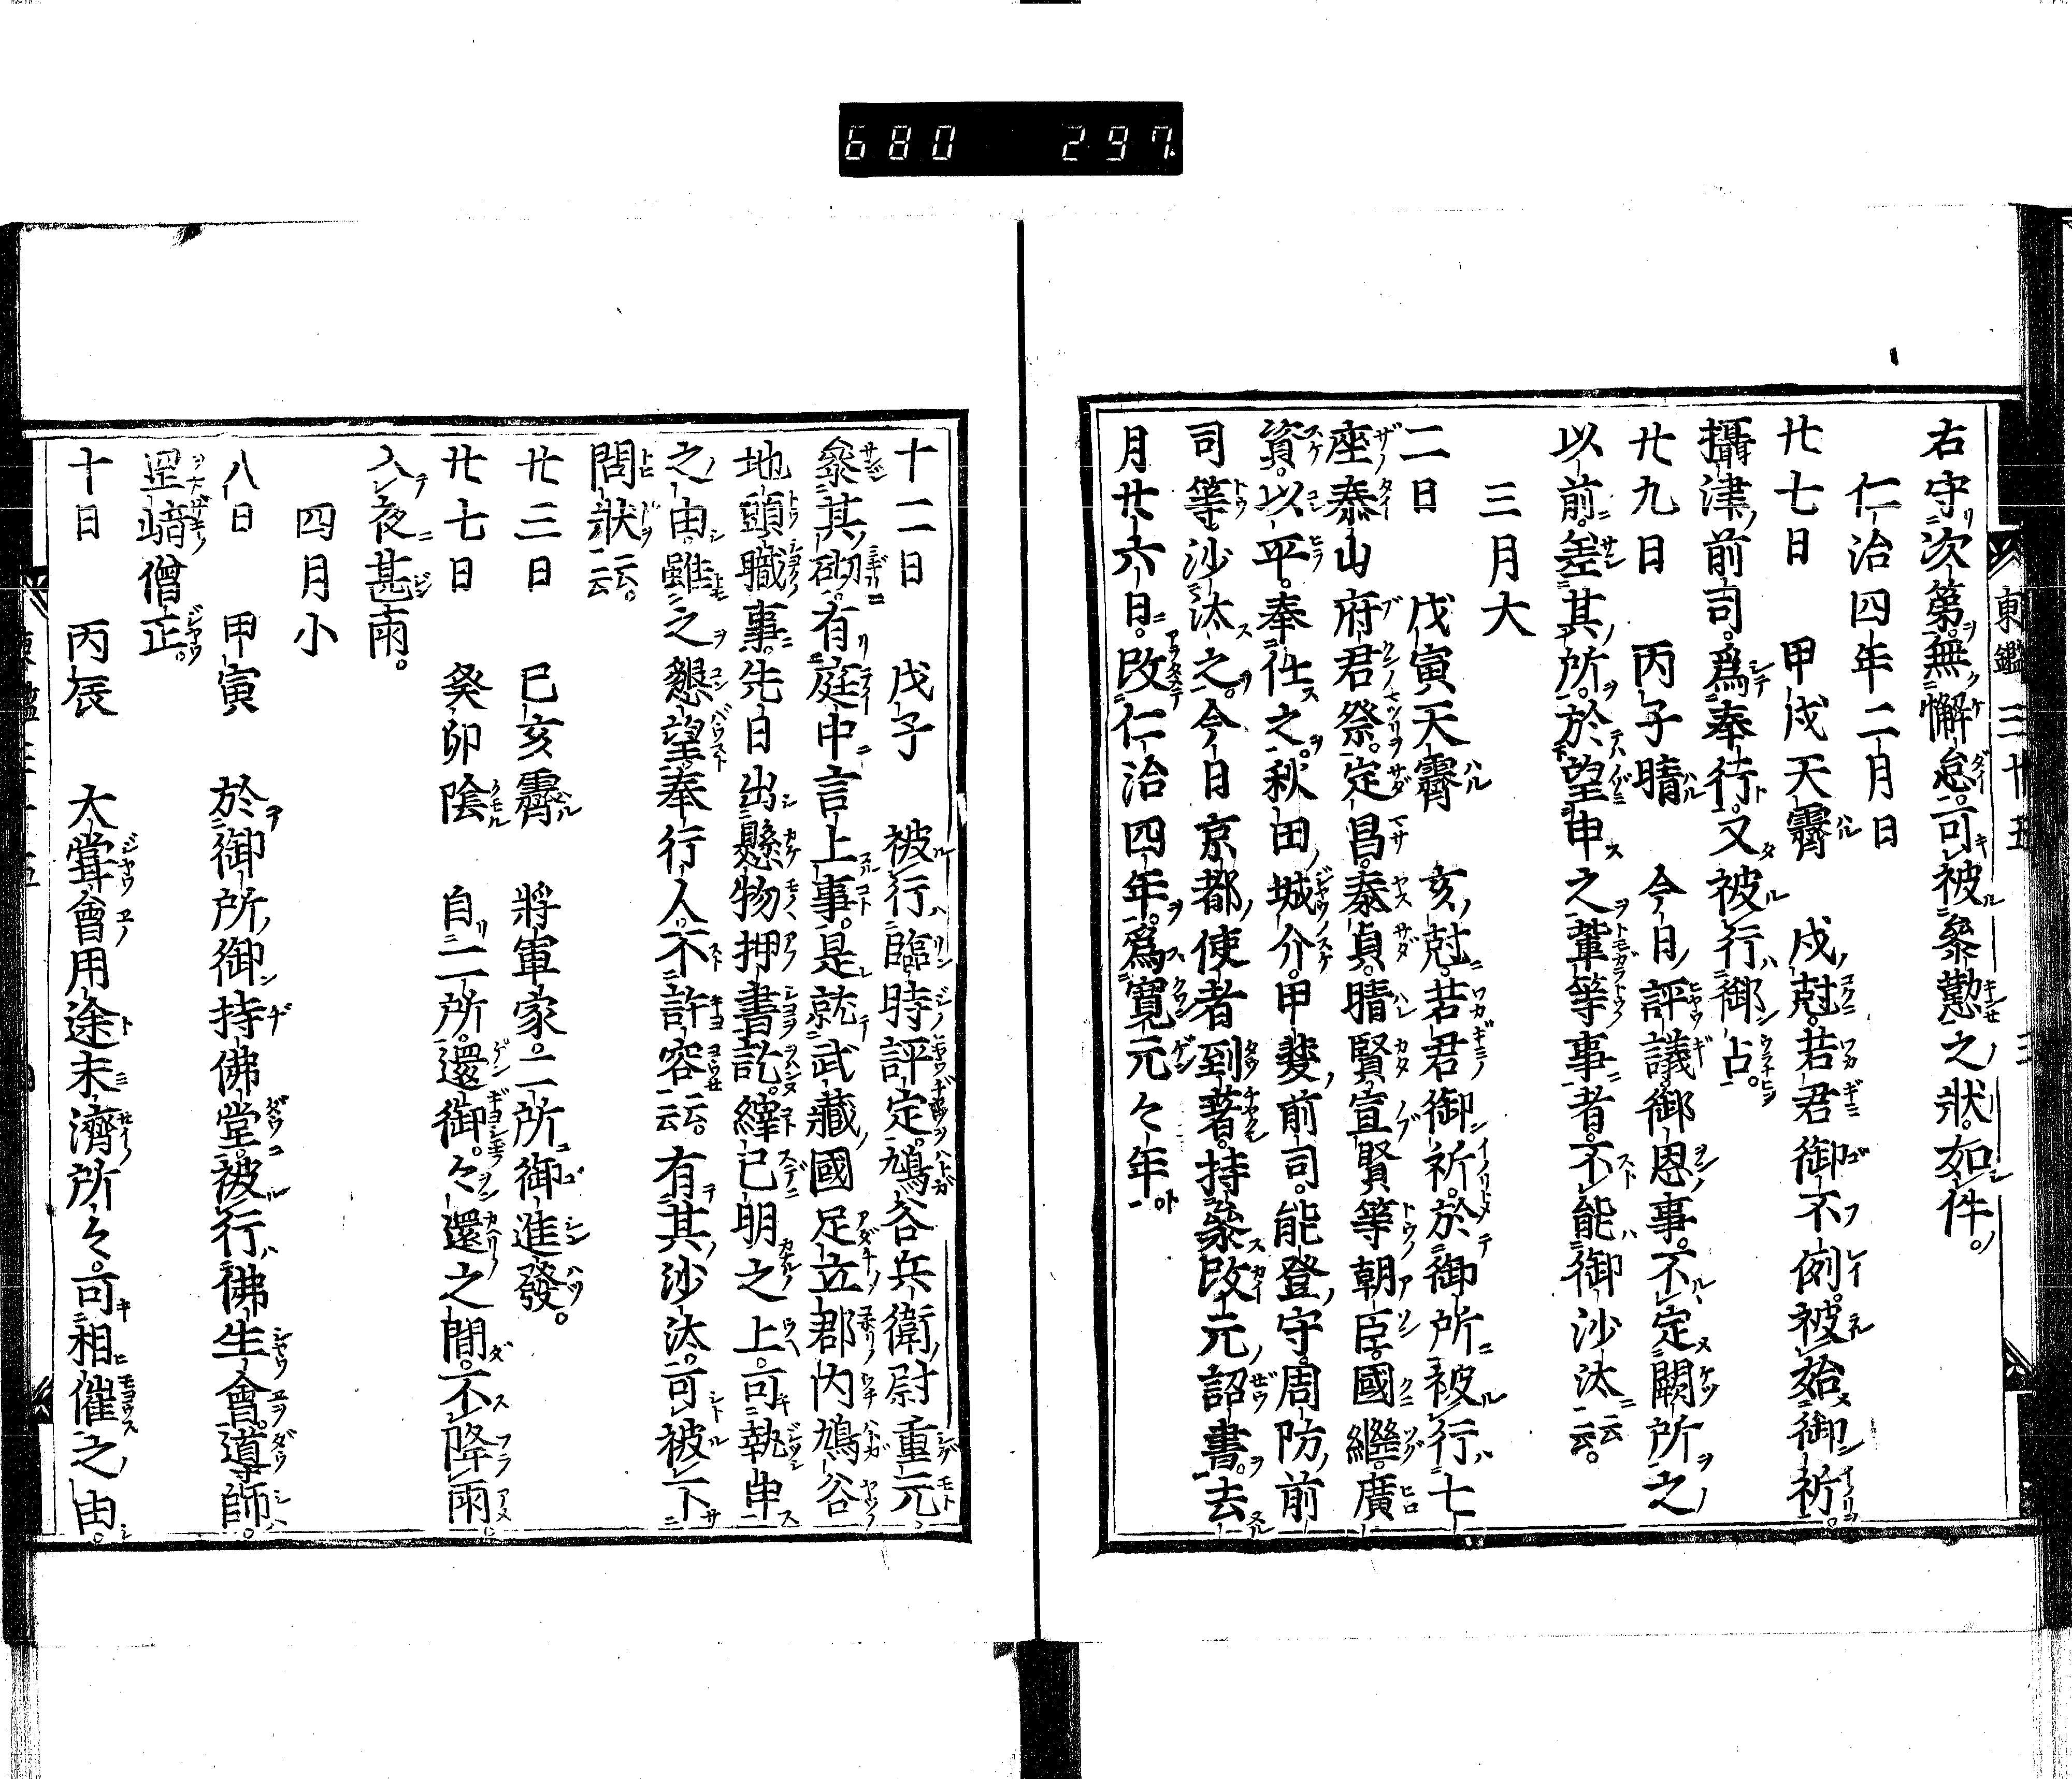 680 297
東鑑 三十五 三
右守次第。無懈怠。可被參懃之狀。如件。
仁治四年二月日
廿七日 甲戌天霽 戌尅。若君御不例。被始御祈。
攝津前司。爲奉行。又被行御占。
廿九日 丙子晴 今日評議。御恩事。不定闕所之
以前。差其所。於望申之輩等事者。不能御沙汰云云。
三月大
二日 戊寅天霽 亥尅。若君御祈。於御所被行七
座泰山府君祭。定昌。泰貞。晴賢。宣賢等朝臣。國繼。廣
資。以平。奉仕之。秋田城介。甲斐前司。能登守。周防前
司等沙汰之。今日京都使者到著。持參改元詔書。去
月廿六日。改仁治四年。爲寬元々年。
十二日 戊子 被行臨時評定。鳩谷兵衛尉重元。
參其砌。有庭中言上事。是就武藏國足立郡內鳩谷
地頭職事。先日出懸物押書訖。縡已明之上。可執申
之由。雖之懇望。奉行人。不許容云云。有其沙汰。可被下
問狀云云。
廿三日 己亥霽 將軍家。二所御進發。
廿七日 癸卯陰 自二所。還御。々還之間。不降雨
入夜甚雨。
四月小
八日 甲寅 於御所御持佛堂。被行佛生會。導師。
僧正。
十日 丙辰 大嘗會用途未濟所々。可相催之由。